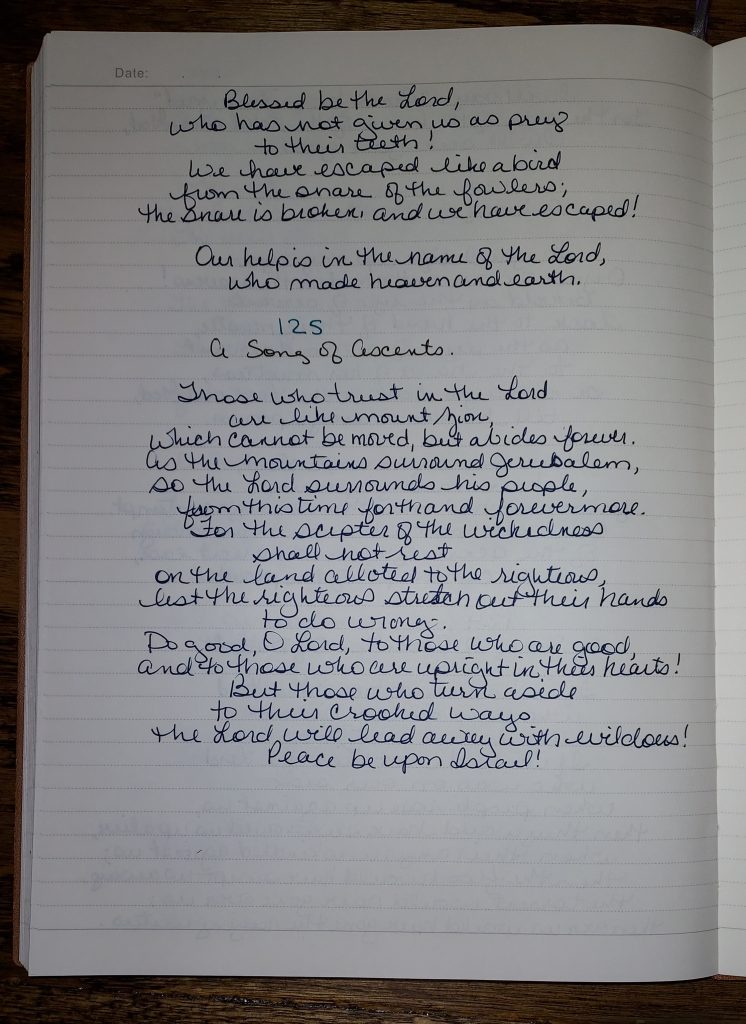 Date:
Blessed be the Lord,
who has not given us as prey
to their teeth!
We have escaped like a bird
from the snare of the fowlers;
the snare is broken, and we have escaped!
Our help is in the name of the Lord,
who made heaven and earth.
125
A Song of Ascents.
Those who trust in the Lord
are like Mount Zion,
which cannot be moved, but abides forever.
As the mountains surround Jerusalem,
so the Lord surrounds his people,
from this time forth and forevermore.
For the scepter of the wickedness
shall not rest
on the land alloted to the righteous,
lest the righteous stretch out their hands
to do wrong.
Do good, O Lord, to those who are good,
and to those who are upright in their hearts!
But those who turn aside
to their crooked ways
the Lord will lead away with evildoers!
Peace be upon Israel!